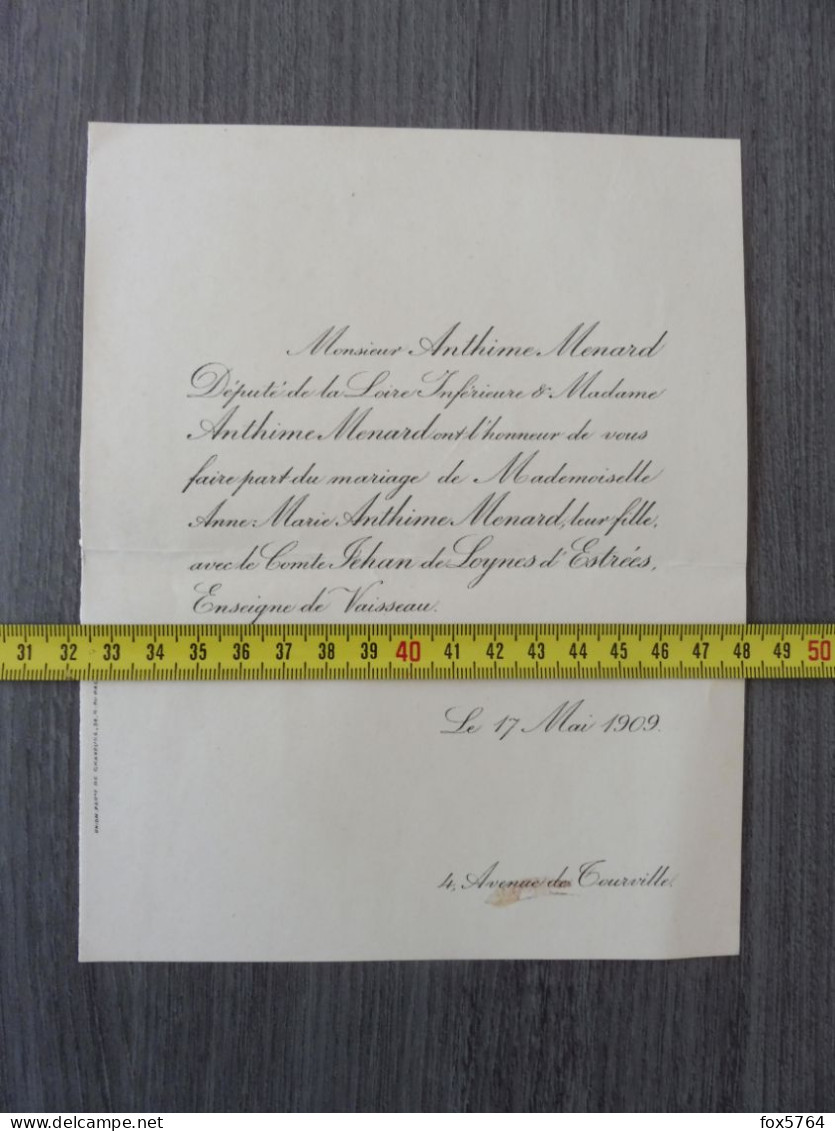 Monsieur Anthime Menard
Député de la Loire Inférieure & Madame
Anthime Menard ont l'honneur de vous
faire part du mariage de Mademoiselle
Anne-Marie Anthime Menard, leur fille,
avec le Comte Jéhan de Loynes d'Estrées,
Enseigne de Vaisseau.
31 32 33 34 35 36 37 38 39 40 41 42 43 44 45 46 47 48 49 50
Le 17 Mai 1909.
4, Avenue de Tourville.
fox5764